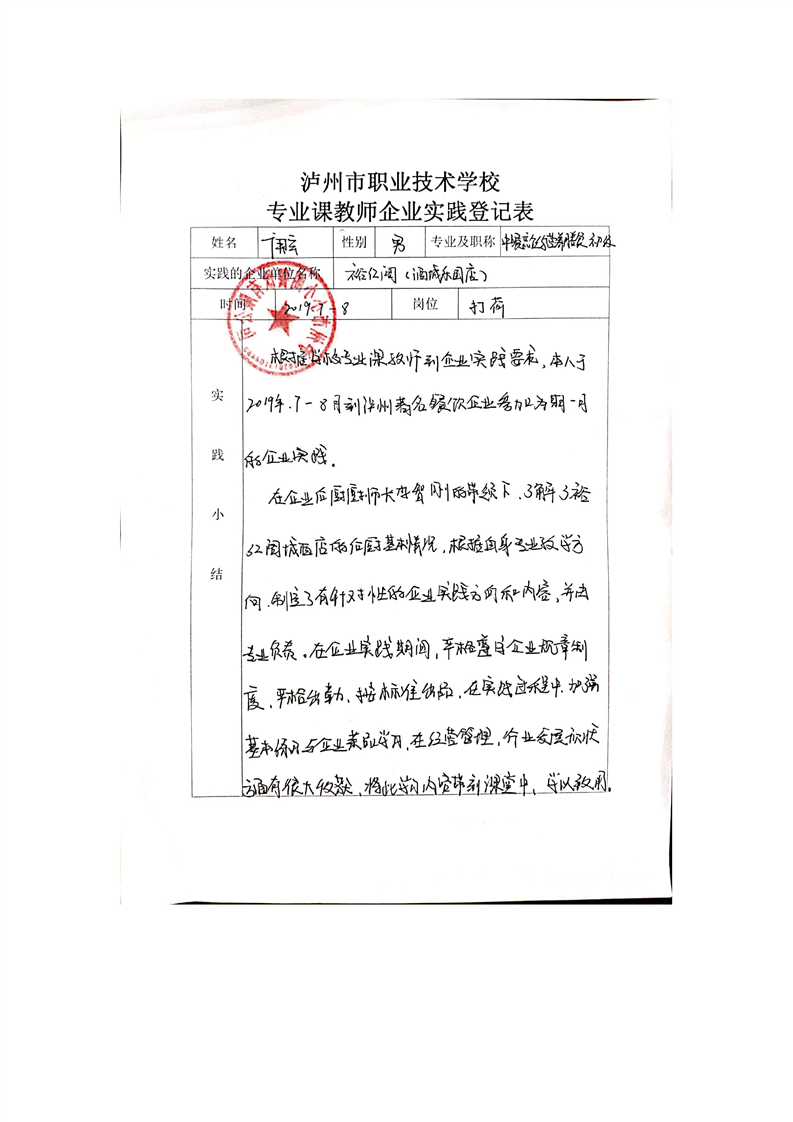 泸州市职业技术学校
专业课教师企业实践登记表
姓名 性别 男 专业及职称
实践的企业单位名称 裕亿阁(酒城乐园店)
时间 2019.7-8 岗位 打荷
实践小结
根据学校专业课教师到企业实践要求,本人于
2019年.7-8月到泸州著名餐饮企业参加为期一月
的企业实践。
在企业后厨厨师长 贺刚的带领下,了解了裕
亿阁 酒店的后厨基本情况,根据自身专业教学方
向,制定了有针对性的企业实践方向和内容,并由
专业负责。在企业实践期间,严格遵守企业规章制
度,严格出勤、按标准 ,在实践过程中,加强
基本练习与企业 学习,在经营管理,行业发展现状
方面有很大收获,将此学习内容带到课堂中,学以致用。